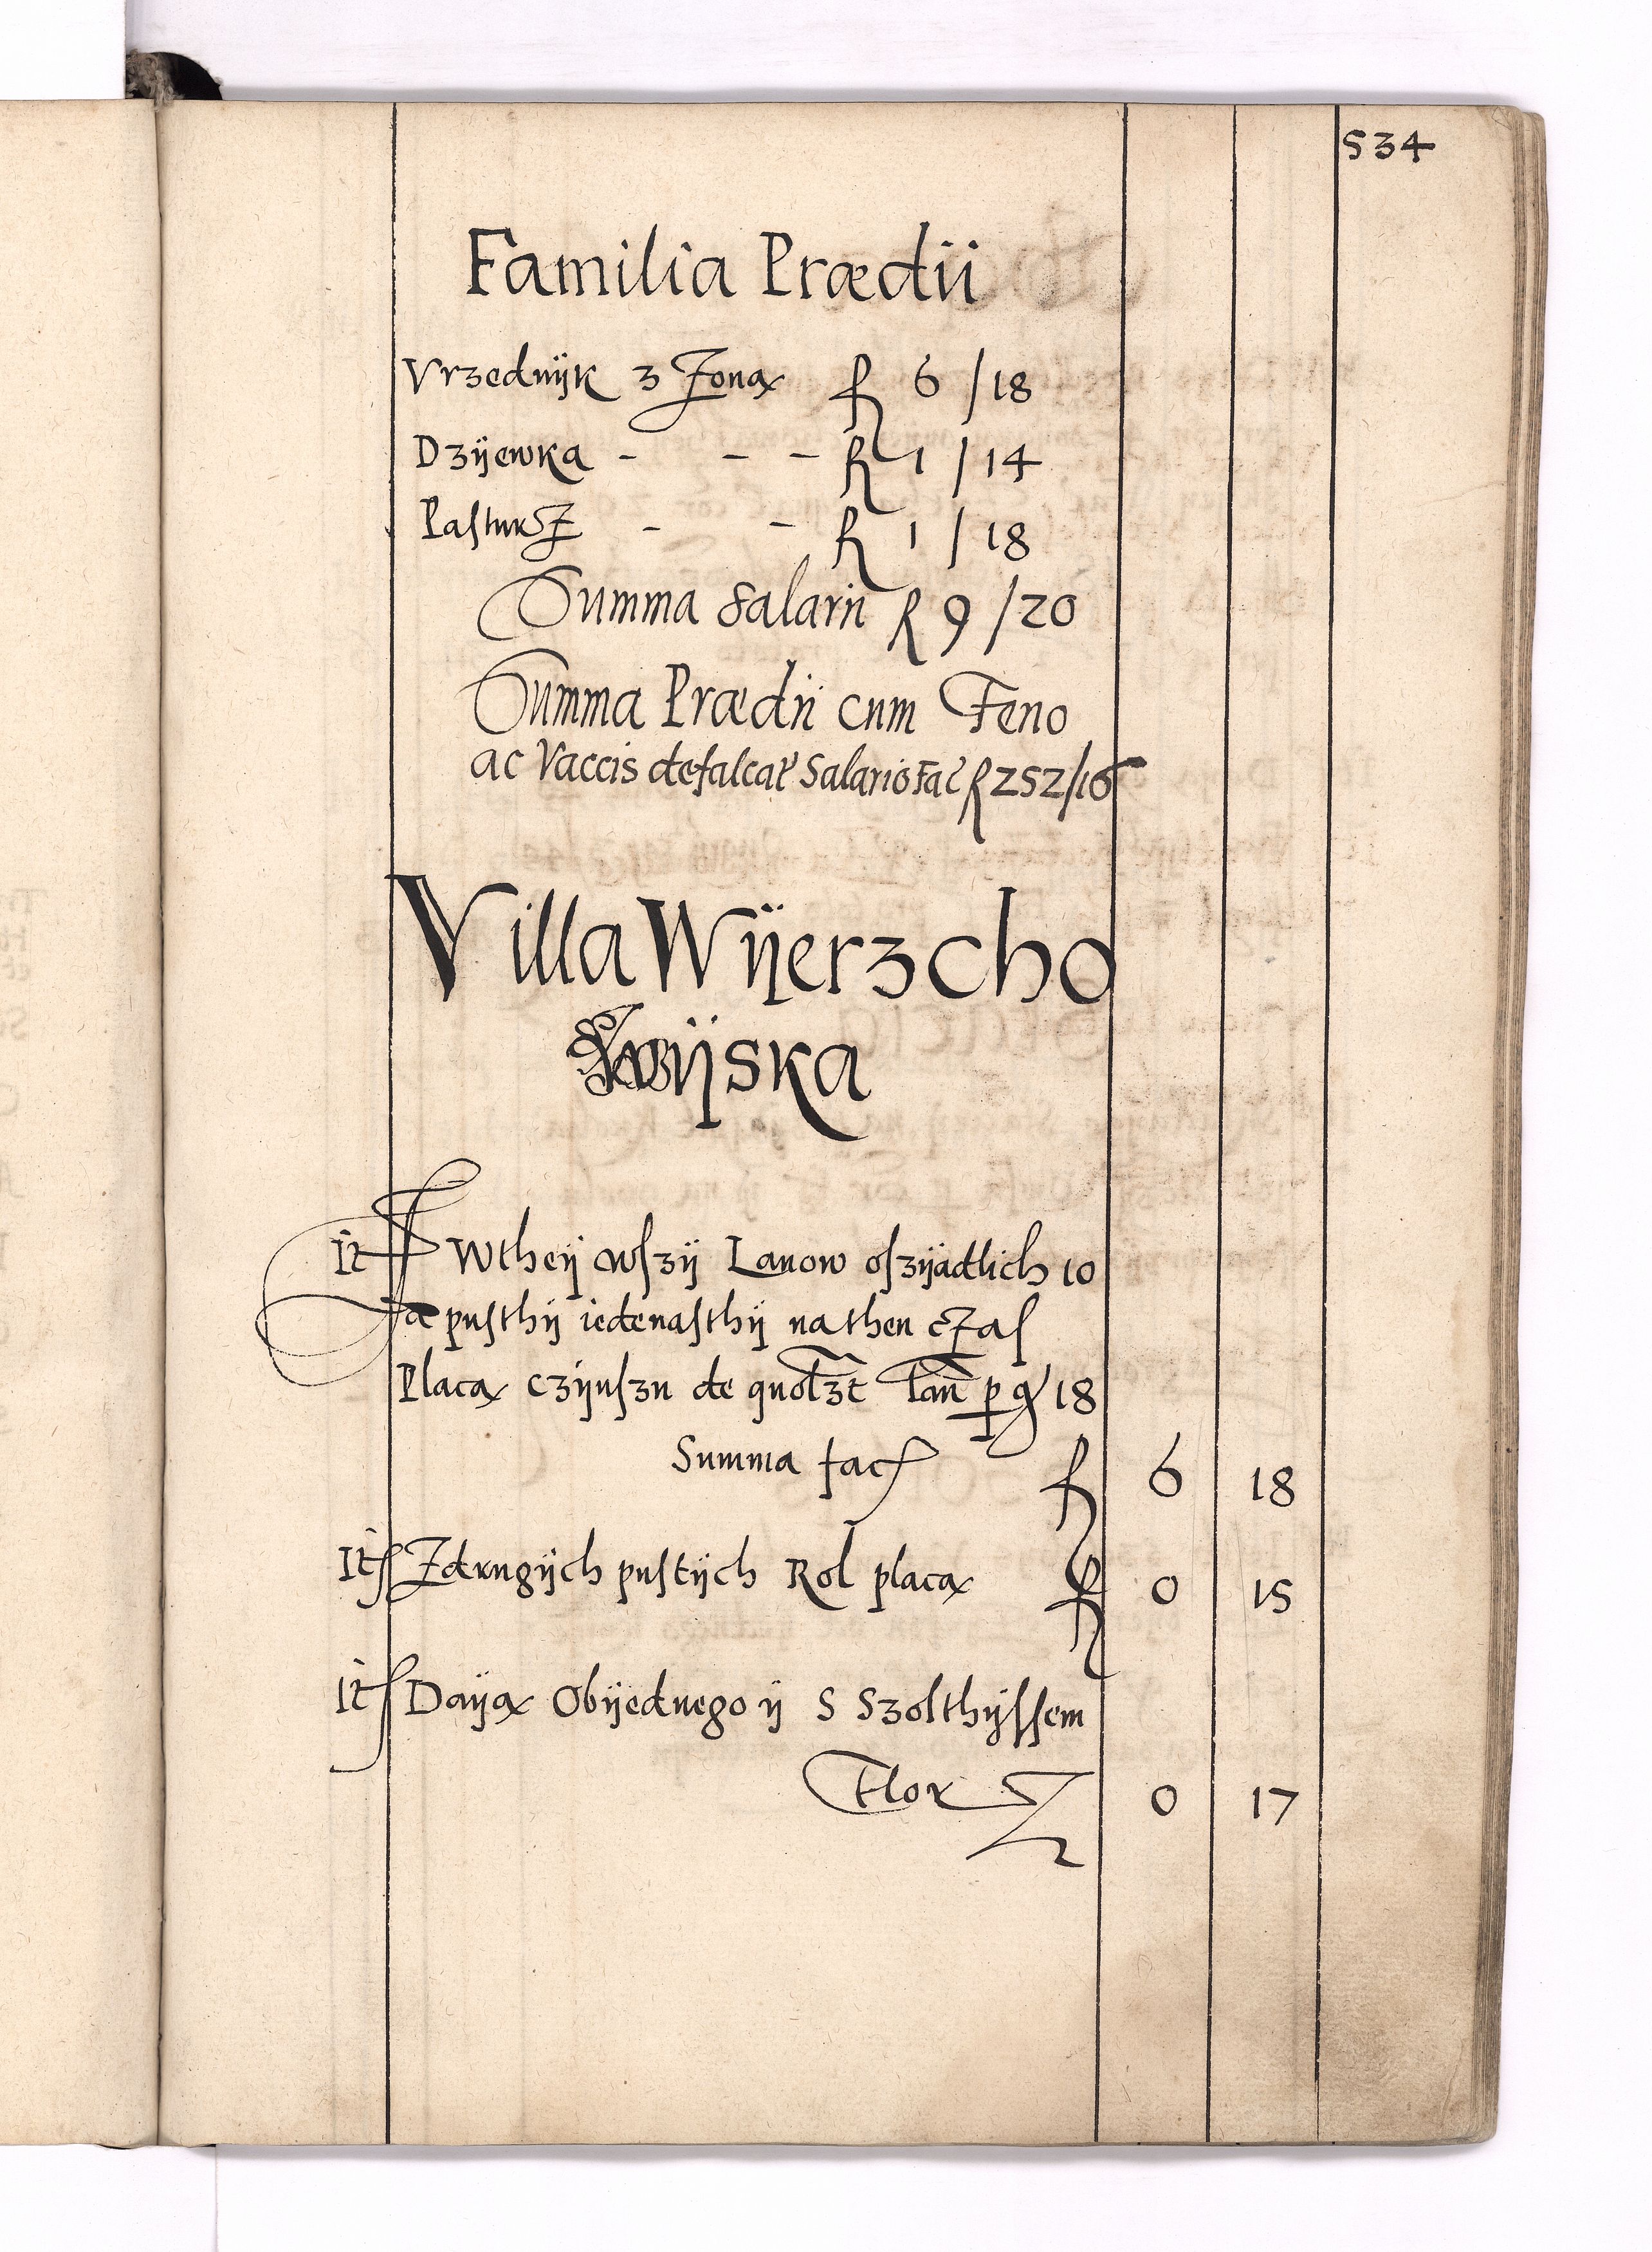 534
Familia Prædii
Vrzednijk z Zoną fl 6 / 18
Dzijewka - - - fl 1 / 14
Pasturz - - fl 1 / 18
Summa Salarii fl 9 / 20
Summa Prædii cum Feno
ac Vaccis defalcat Salario Fac fl 252/16
Villa Wijerzcho
wijska
It Wtheij wszij Lanow oszijadlich 10
a pusthij iedenasthij na then czas
Placą czijnszu de quolzt Lan p gr 18
Summa fac fl 6 18
It Zdrugijch pustijch Rol placą fl 0 15
It Daiją Obijednego ij S Szolthijssem
Flor 0 17